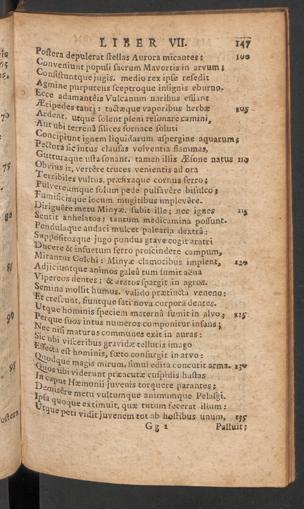 LIBER VII. 147
Postera depulerat stellas Aurora micantes; 100
Conveniunt populi sacrum Mavortis in arvum;
Consistuntque jugis. medio rex ipse resedit
Agmine purpureus sceptroque insignis eburno.
Ecce adamantëis Vulcanum naribus efflant
Æripedes tauri; tactæque vaporibus herbæ 105
Ardent. utque solent pleni resonare camini,
Aut ubi terrenâ silices fornace soluti
Concipiunt ignem liquidarum aspergine aquarum;
Pectora sic intus clausas volventia flammas,
Gutturaque usta sonant. tamen illis Æsone natus 110
Obvius it, vertêre truces venientis ad ora
Terribiles vultus, præfixaque cornua ferro;
Pulvereumque solum pede pulsavêre bisulco;
Fumificisque locum mugitibus implevêre.
Diriguêre metu Minyæ. subit ille; nec ignes 115
Sentit anhelatos; tantum medicamina possunt.
Pendulaque audaci mulcet palearia dextrâ:
Suppositosque jugo pondus grave cogit aratri
Ducere & insuetum ferro proscindere campum.
Mirantur Colchi: Minyæ clamoribus implent, 120
Adjiciuntque animos galeâ tum sumit aënâ
Vipereos dentes; & aratos spargit in agros.
Semina mollit humus. valido prætincta veneno:
Et crescunt, fiuntque sati nova corpora dentes.
Utque hominis speciem maternâ sumit in alvo; 125
Perque suos intus numeros componitur infans;
Nec nisi maturas communes exit in auras:
Sic ubi visceribus gravidæ telluris imago
Effecta est hominis, fœto consurgit in arvo:
Quodque magis mirum, simul edita concutit arma. 130
Quos ubi viderunt præacutæ cuspidis hastas
In caput Hæmonii juvenis torquere parantes;
Demisêre metu vultumque animumque Pelasgi.
Ipsa quoque extimuit, quæ tutum fecerat illum:
Utque peti vidit juvenem tot ab hostibus unum, 135
Gg 2 Palluit;
75